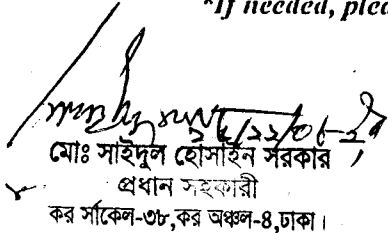 *If needed, plea
মোঃ সাইদুল হোসাইন সরকার
প্রধান সহকারী
কর সার্কেল-৩৮,কর অঞ্চল-৪,ঢাকা।